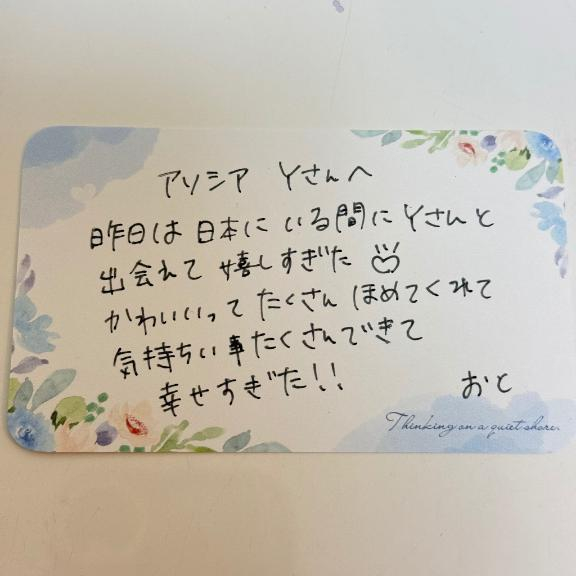 アソシア Yさんへ
昨日は日本にいる間にYさんと
出会れて嬉しすぎた
かわいいってたくさんほめてくれて
気持ちい事たくさんできて
幸せすぎた!!
おと
Thinking on a quiet shore.